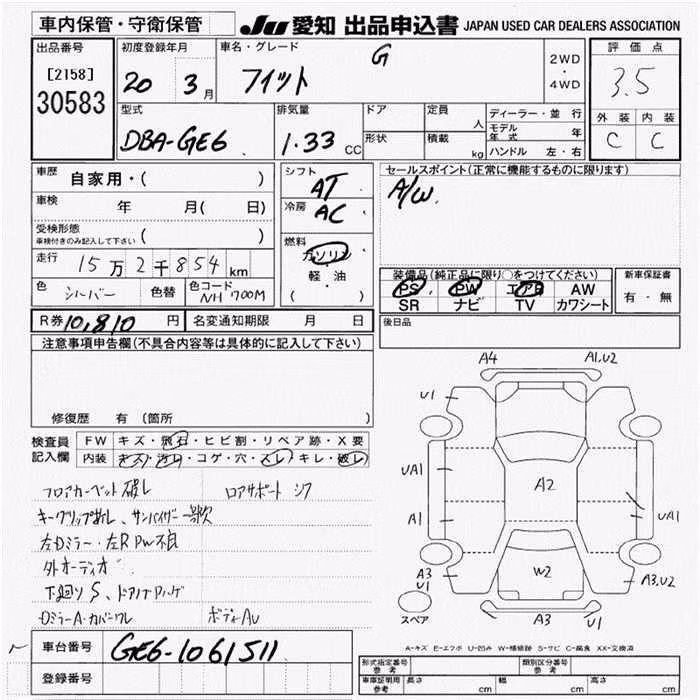 車内保管・守衛保管
JU 愛知 出品申込書 JAPAN USED CAR DEALERS ASSOCIATION
出品番号
[2158]
30583
初度登録年月
20 3月
車名・グレード
フィット G
2WD
・
4WD
評価点
3.5
外装 内装
C C
型式
DBA-GE6
排気量
1.33 CC
ドア
形状
定員 人
積載 kg
ディーラー・並行
モデル年式 年
ハンドル 左・右
車歴 自家用・( )
車検 年 月( 日)
受検形態
車検付きのみ記入して下さい ( )
走行 15万2千854km
色 シルバー 色替 色コード NH700M
シフト AT
冷房 AC
燃料
ガソリン
・
軽・油
( )
セールスポイント(正常に機能するものに限ります)
A/W.
装備品(純正品に限り○をつけてください)
PS PW エアB AW
SR ナビ TV カワシート
新車保証書
有・無
R券 10,810 円 名変通知期限 月 日
後日品
注意事項申告欄(不具合内容等は具体的に記入して下さい)
修復歴 有 (箇所 )
検査員記入欄
FW キズ・飛石・ヒビ割・リペア跡・X要
内装 キズ・汚レ・コゲ・穴・スレ・キレ・破レ
フロアカーペット破レ ロアサポートシワ
キーグリップ折レ、サンバイザー一部欠
左Dミラー・左RPW不良
外オーディオ
下廻りS、ドア内張ハゲ
DミラーA・カバーワレ ボディAU
車台番号 GE6-1061511
登録番号
A4 A1,U2
U1
UA1
A1
A2
UA1
W2
A3
U1
A3,U2
スペア
A3 U1
A-キズ E-エクボ U-凹み W-補修跡 S-サビ C-腐食 XX-交換済
形式指定番号 参考 類別区分番号 参考
車庫証明用 参考 長さ cm 幅 cm 高さ cm